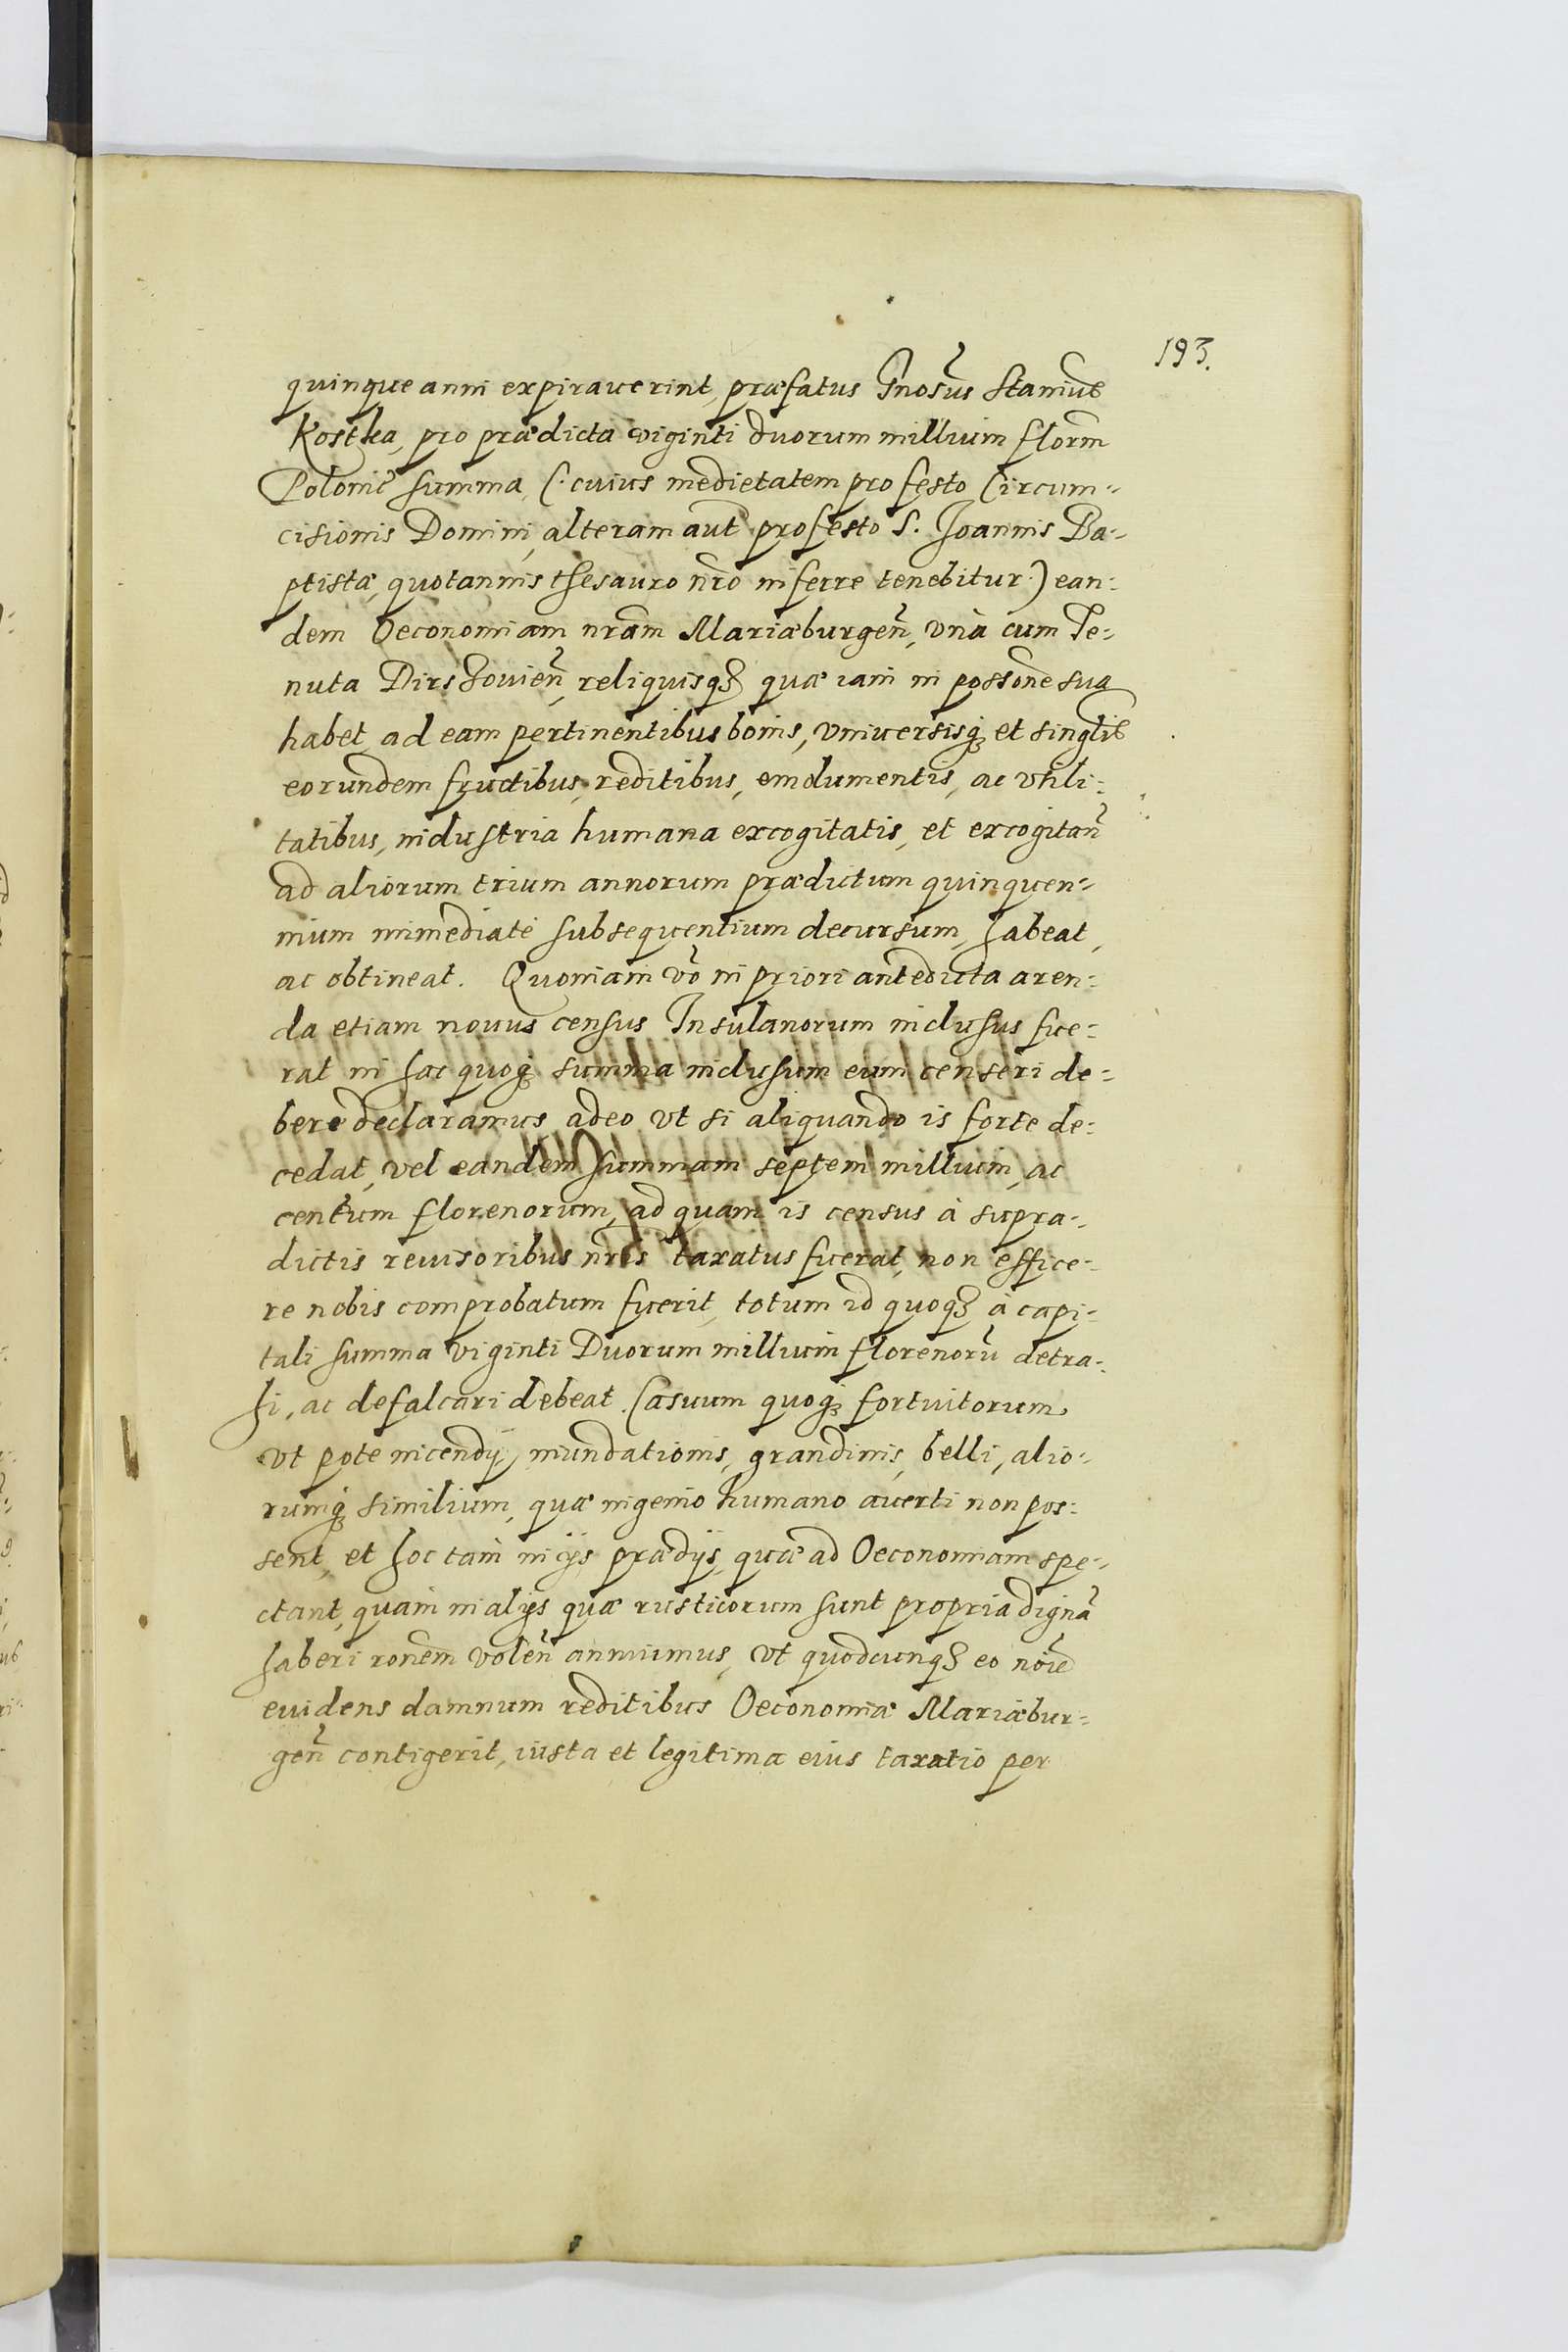 193.
quinque anni expirauerint, præfatus Gnosus Stanius
Kostka, pro prædicta viginti duorum millium florm
Polonic summa, (: cuius medietatem pro festo Circum-
cisionis Domini, alteram aut pro festo S. Joannis Ba-
ptistæ, quotannis thesauro nro inferre tenebitur:) ean-
dem Oeconomiam nram Mariæburgen, vnà cum Te-
nuta Dirschouien, reliquisq3 quæ iam in possone sua
habet, ad eam pertinentibus bonis, vniuersisq3 et singlis
eorundem fructibus, reditibus, emolumentis, ac vtili-
tatibus, industria humana excogitatis, et excogitan
ad aliorum trium annorum prædictum quinquen-
nium immediatè subsequentium decursum, habeat,
ac obtineat. Quoniam vo in priori antedicta aren-
da etiam nouus census Insulanorum inclusus fue-
rat in hac quoq3 summa inclusum eum censeri de-
bere declaramus adeo vt si aliquando is forte de-
cedat, vel eandem summam septem millium, ac
centum florenorum, ad quam is census à supra-
dictis reuisoribus nris taxatus fuerat, non effice-
re nobis comprobatum fuerit, totum id quoq3 à capi-
tali summa viginti Duorum millium florenorũ detra-
hi, ac defalcari debeat. Casuum quoq3 fortuitorum,
vt pote incendij, inundationis, grandinis, belli, alio-
rumq3 similium, quæ ingenio humano auerti non pos-
sent, et hoc tam in ijs prædijs, quæ ad Oeconomiam spe-
ctant, quam in alijs quæ rusticorum sunt propria dignã
haberi ronem volen annuimus, vt quodcunq3 eo noie
euidens damnum reditibus Oeconomiæ Mariæbur-
gen contigerit, iusta et legitima eius taxatio per